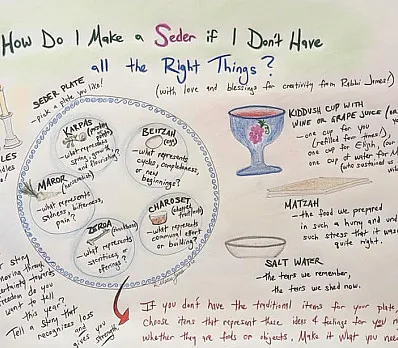 How Do I Make a Seder if I Don't Have
all the Right Things?
(with love and blessings for creativity from Rabbi James!)
SEDER PLATE
- pick a plate you like!
KARPAS
- what represents
spring, growth,
and flourishing?
BEITZAH
(egg)
- what represents
cycles, completeness,
or new
beginnings?
MAROR
(horseradish)
- what represents
sadness, bitterness,
pain?
ZEROA
(shankbone)
- what represents
sacrifice,
offering?
CHAROSET
- what represents
communal effort
or building?
KIDDUSH CUP WITH
WINE OR GRAPE JUICE (or
- one cup for you
(refilled four times!),
one cup for Elijah, (our
one cup of water for M
(who sustained us
MATZAH
- the food we prepared
in such a hurry and under
such stress that it wasn't
quite right.
SALT WATER
- the tears we remember,
the tears we shed now.
LES
ndles
r story
moving through
certainty towards
freedom do you
want to tell
this year?
Tell a story that
recognizes loss
and
gives you
strength
If you don't have the traditional items for your plate,
choose items that represent these ideas & feelings for you no
whether they are foods or objects. Make it what you need